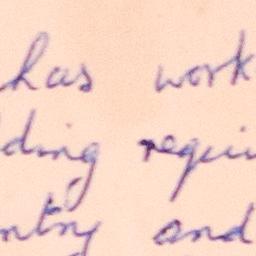 has work
ding requi
ntry and